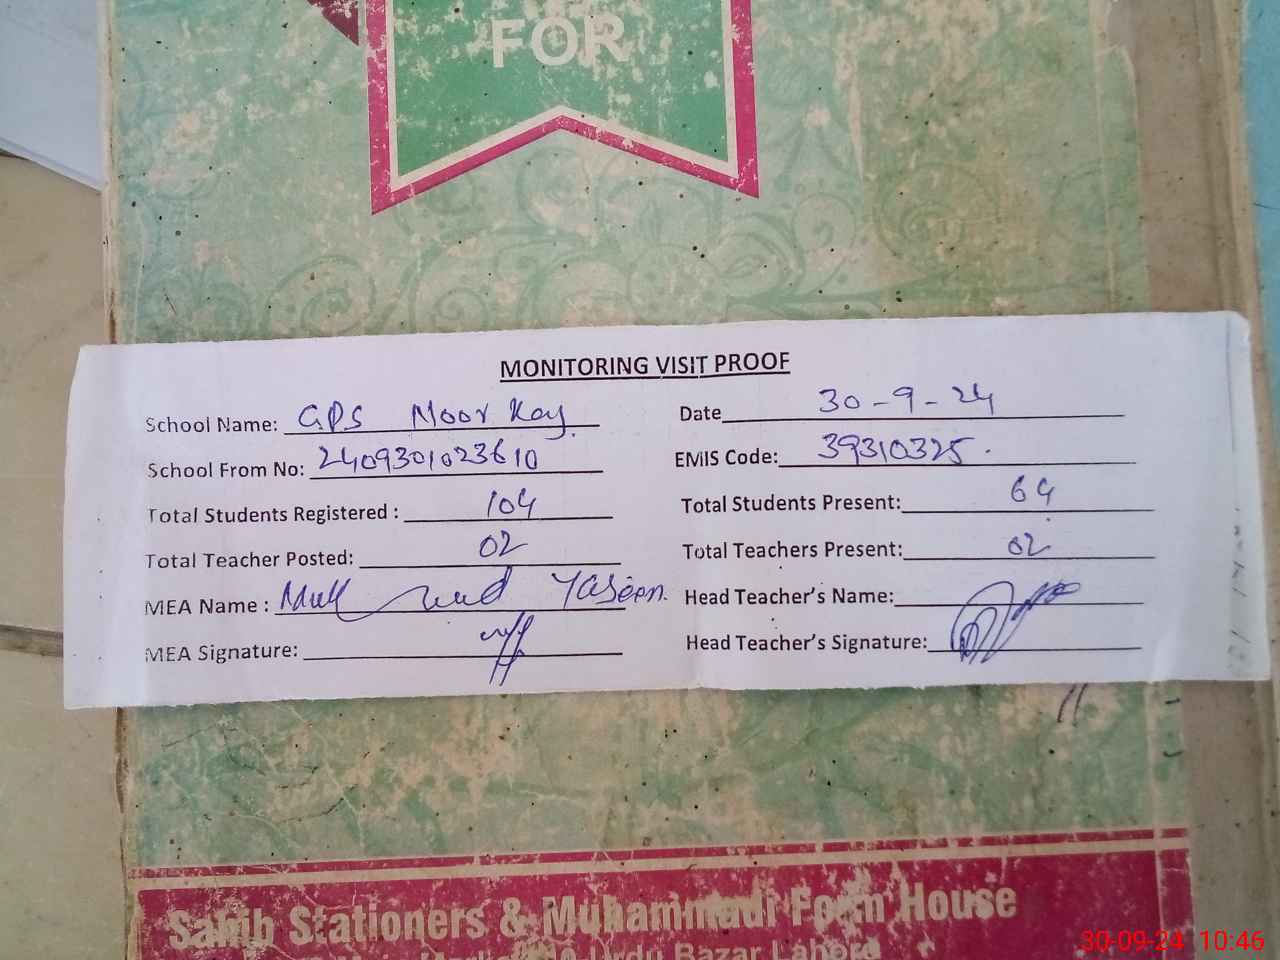 FOR
MONITORING VISIT PROOF
School Name: GPS Moor Kay. Date 30-9-24
School From No: 2409301023610 EMIS Code: 39310325.
Total Students Registered : 104 Total Students Present: 64
Total Teacher Posted: 02 Total Teachers Present: 02
MEA Name : Yaseen. Head Teacher's Name:
MEA Signature: Head Teacher's Signature:
Sahib Stationers & Muhammadi Form House
Urdu Bazar Lahore
30-09-24 10:46